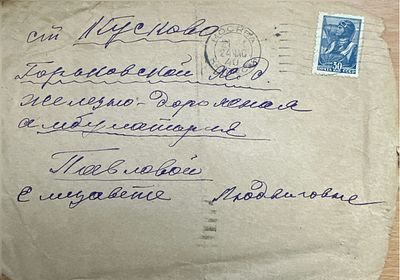 ст Кускова
МОСКВА
40
30
ПОЧТА СССР
Горьковской ж. д.
железно-дорожная
амбулатория
Павловой
Елизавете Людвиговне